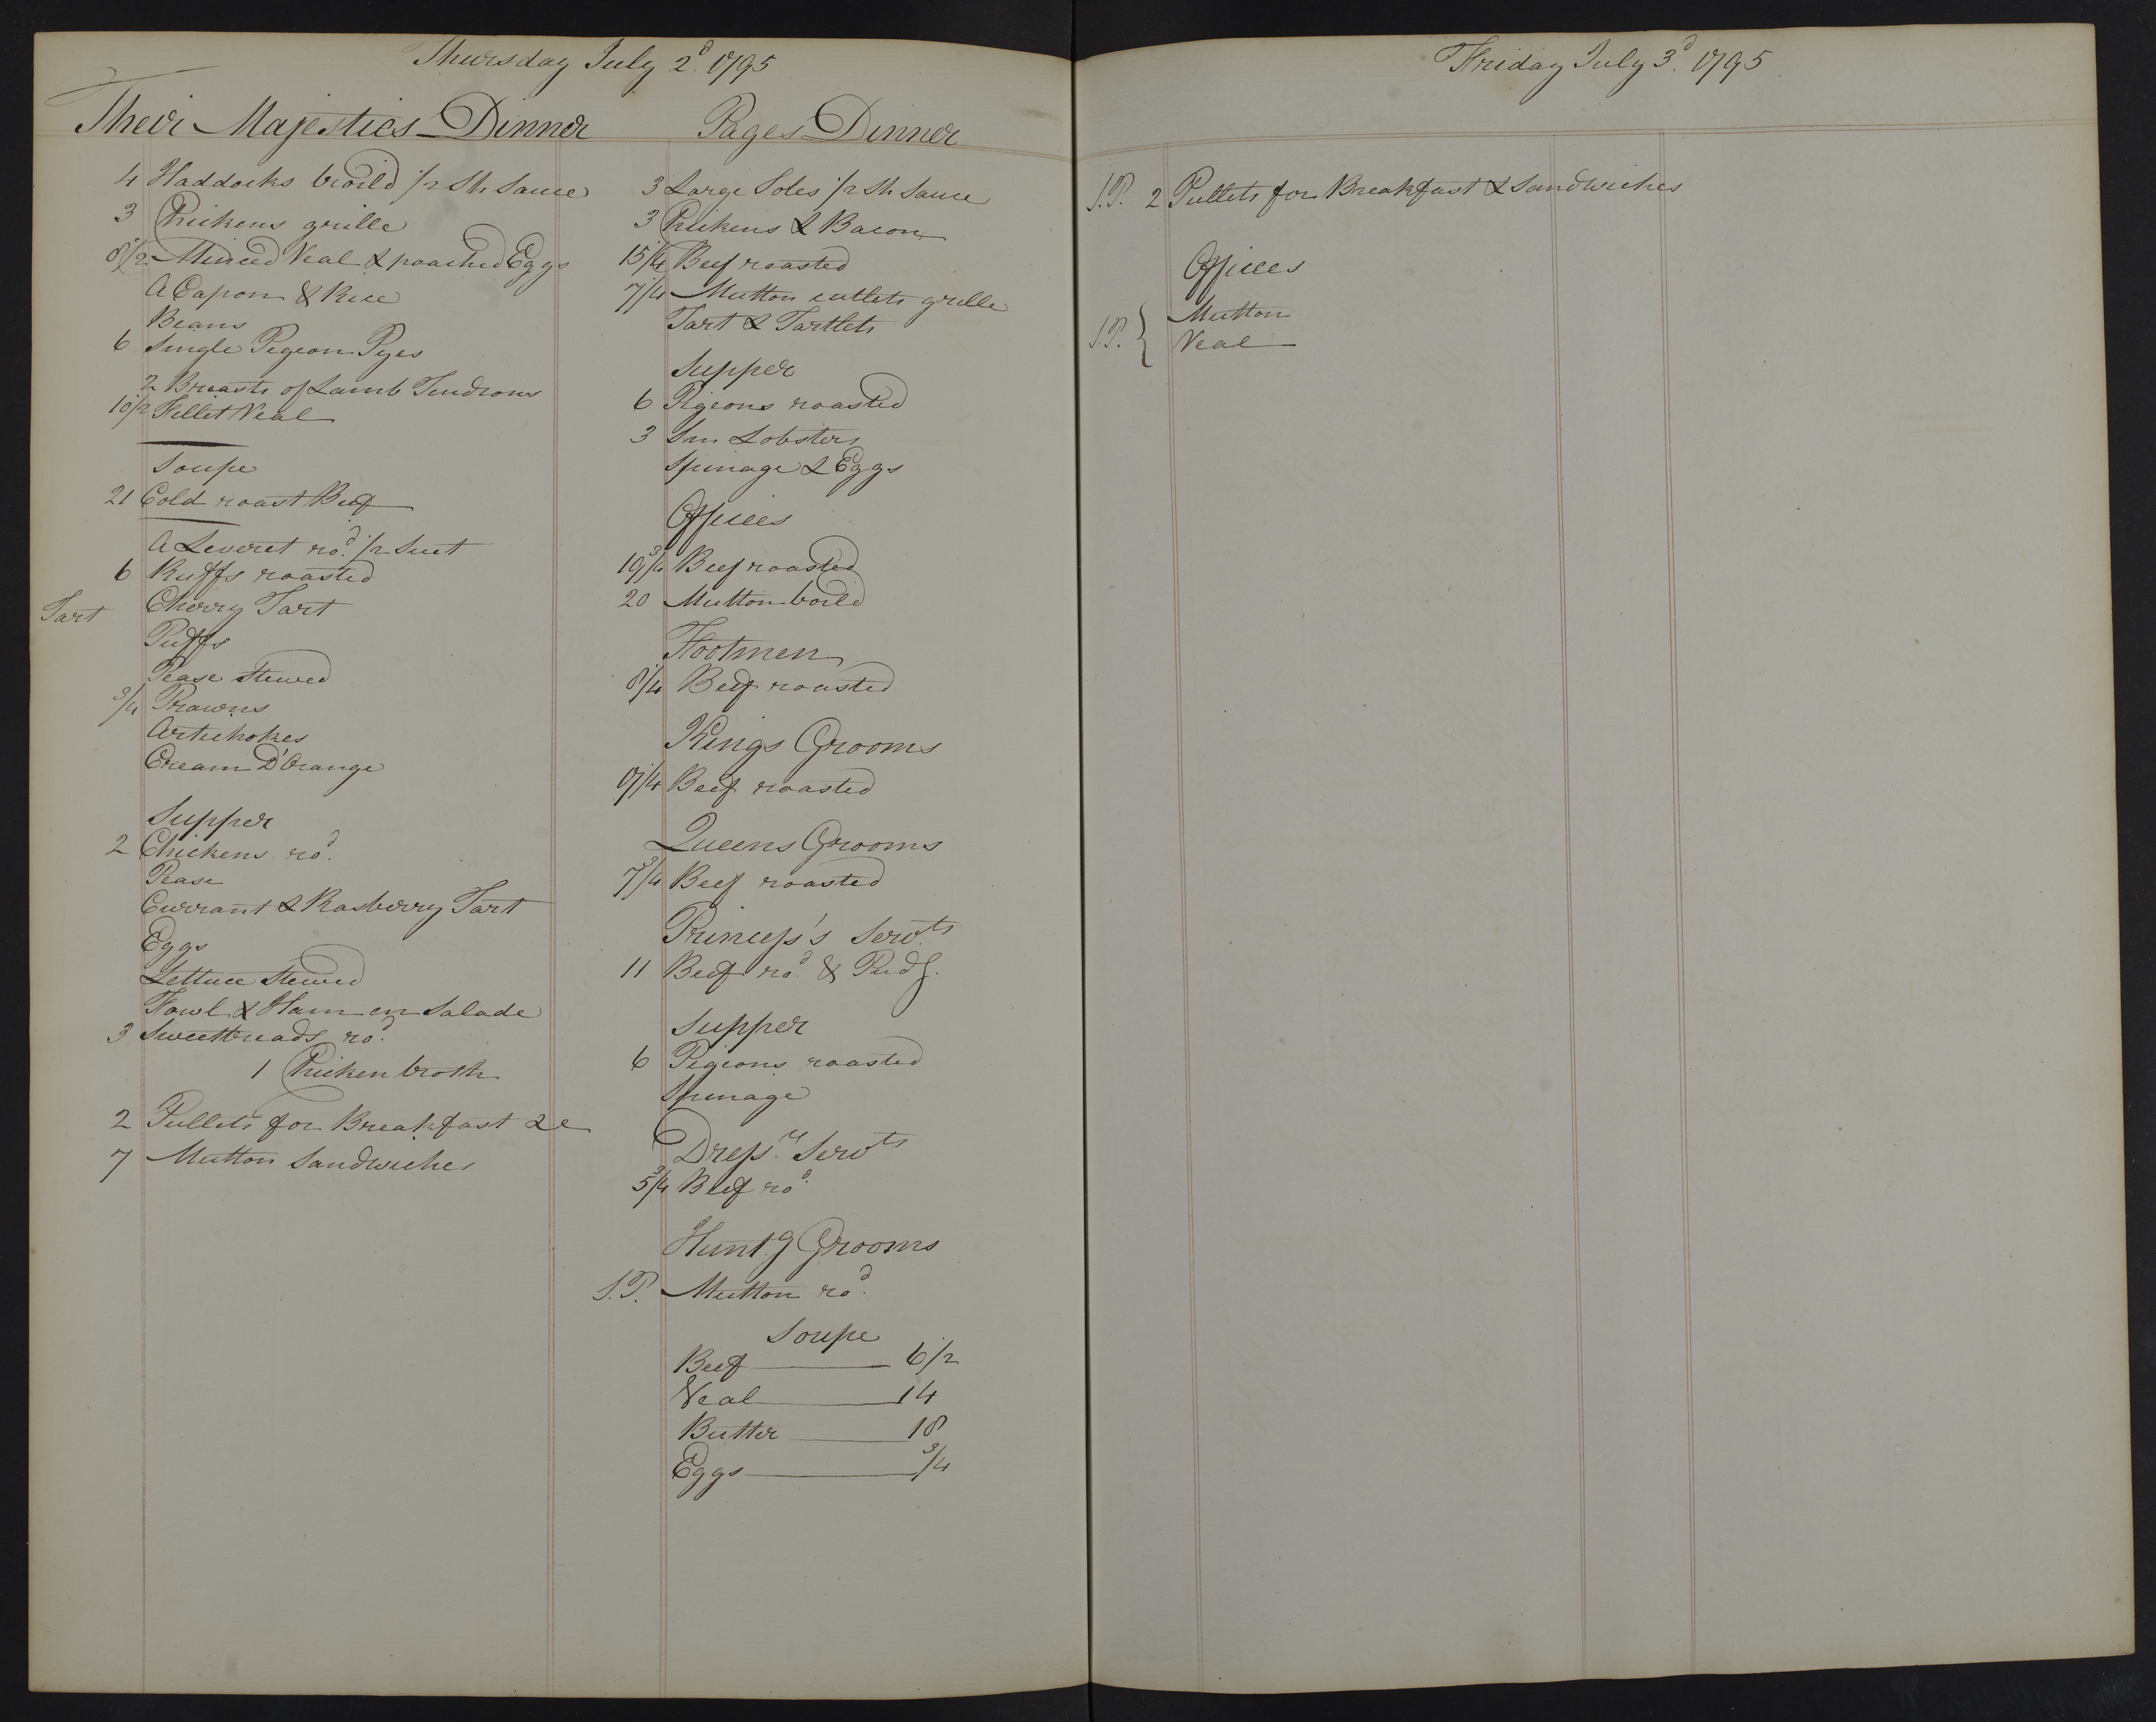 Thursday July 2d. 1795
Their Majesties Dinner
4 Haddocks broild 1/2 Sh Sauce
3 Chickens grille
8 1/2 Minced Veal & poached Eggs
A Capon & Rice
Beans
6 Single Pigeon Pyes
2 Breasts of Lamb Tendrons
10 1/2 Fillet Veal
Soupe
21 Cold roast Beef
A Leveret rod. 1/2 Suet
6 Ruffs roasted
Tart Cherry Tart
Puffs
Pease Stewed
3/4 Prawns
Artichokes
Cream D'Orange
Supper
2 Chickens rod.
Pease
Currant & Rasberry Tart
Eggs
Lettuce Stewed
Fowl & Ham en Salade
3 Sweetbreads rod.
1 Chicken broth
2 Pullets for Breakfast &c
7 Mutton Sandwiches
Pages Dinner
3 Large Soles 1/2 Sh Sauce
3 Chickens & Bacon
15 1/4 Beef roasted
7 1/4 Mutton cutlets grille
Tart & Tartlets
Supper
6 Pigeons roasted
3 Sm Lobsters
Spinage & Eggs
Offices
19 3/4 Beef roasted
20 Mutton boild
Footmen
8 1/4 Beef roasted
Kings Grooms
9 1/4 Beef roasted
Queens Grooms
7 3/4 Beef roasted
Princess's Servts.
11 Beef rod. & Pudg.
Supper
6 Pigeons roasted
Spinage
Dressrs. Servts
5 3/4 Beef rod.
Huntg Grooms
S.P. Mutton rod.
Soupe
Beef 6 1/2
Veal 14
Butter 18
Eggs 3/4
Friday July 3d. 1795
S.P. 2 Pullets for Breakfast & Sandwiches
Offices
Mutton
S.P. { Veal